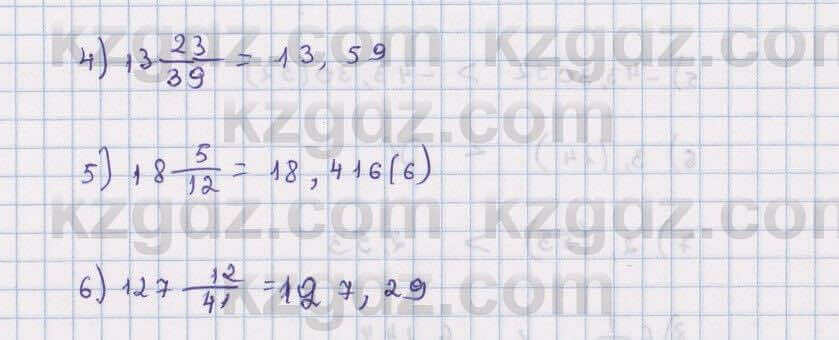 kzgdz.com kzgdz.com
4) 13 23/39 = 13,59
kzgdz.com
5) 18 5/12 = 18,416(6)
kzgdz.com kzgdz.com
6) 127 12/41 = 127,29
kzgdz.com